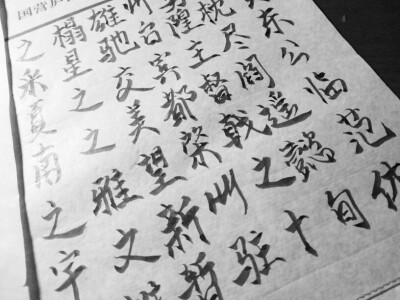 国营
之榻雄州
采星驰台隍枕
夏之交宾主尽东
南之美都督阎公
之雅望棨戟遥临
宇文新州之懿范
暂驻十旬休